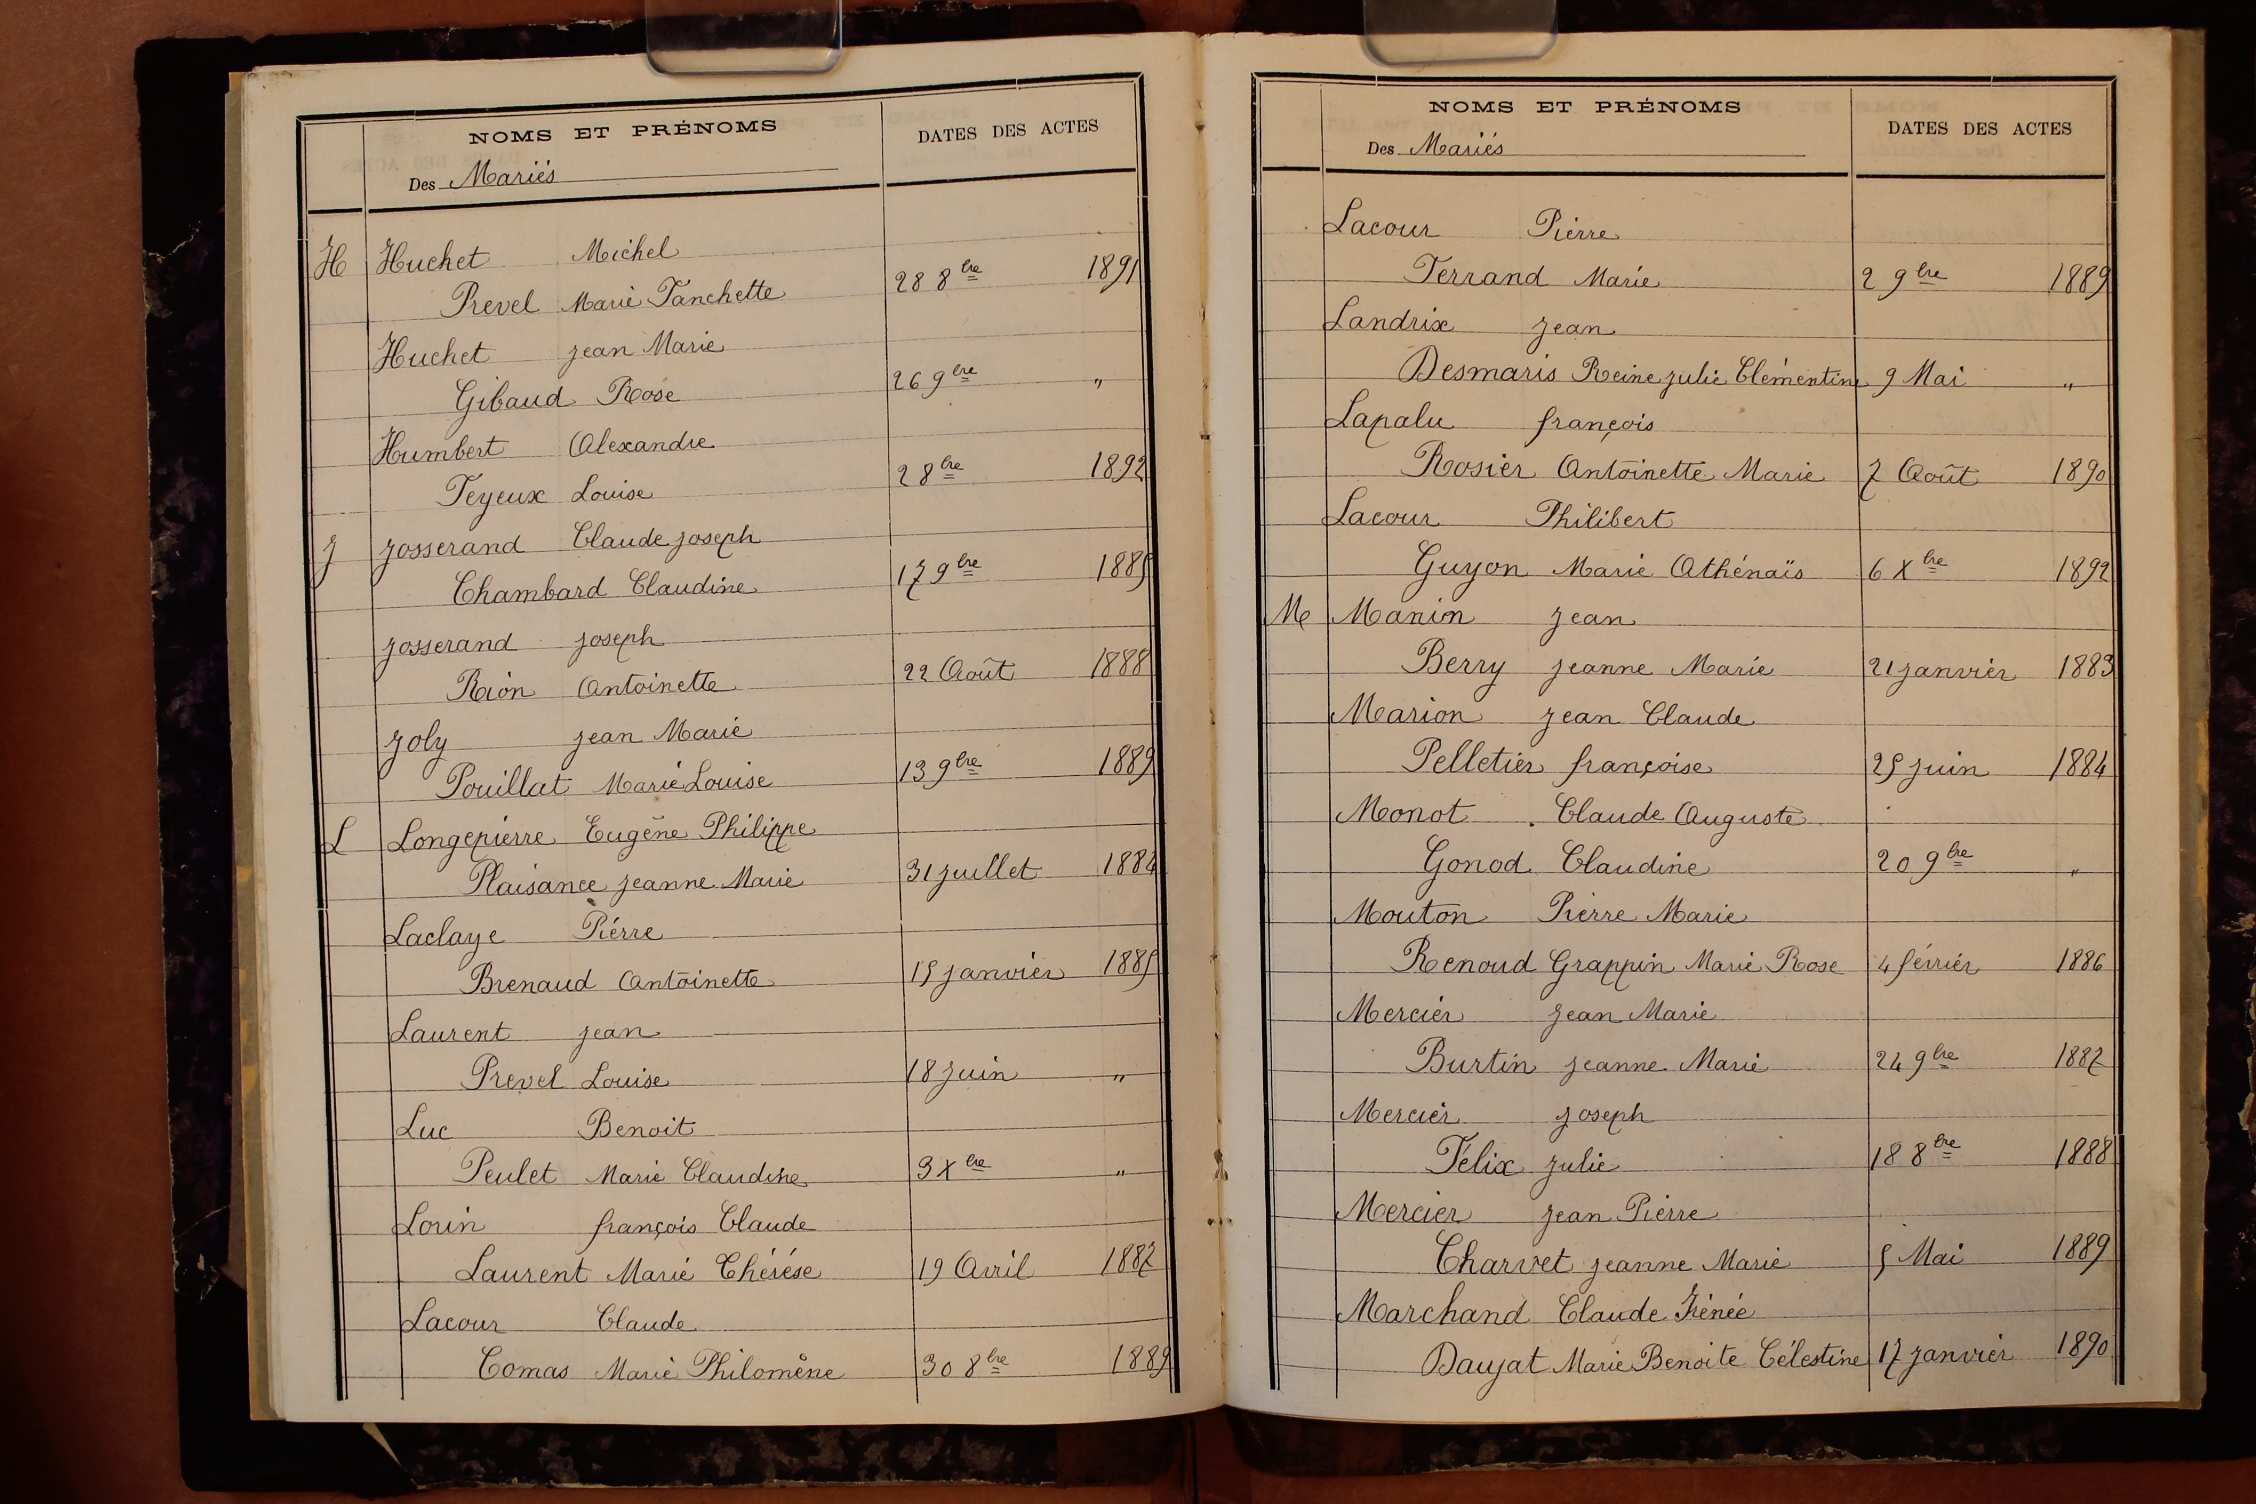 NOMS ET PRÉNOMS DATES DES ACTES
Des Mariés
H Huchet Michel
Prevel Marie Fanchette 28 8bre 1891
Huchet jean Marie
Gibaud Rose 26 9bre "
Humbert Alexandre
Teyeux Louise 2 8bre 1892
J Josserand Claude joseph
Chambard Claudine 17 9bre 1885
Josserand joseph
Rion Antoinette 22 Août 1888
Joly jean Marie
Pouillat Marie Louise 13 9bre 1889
L Longepierre Eugène Philippe
Plaisance jeanne Marie 31 juillet 1884
Laclaye Pierre
Brenaud Antoinette 15 janvier 1885
Laurent jean
Prevel Louise 18 juin "
Luc Benoit
Peulet Marie Claudine 3 Xbre "
Lorin françois Claude
Laurent Marie Thérése 19 Avril 1887
Lacour Claude
Comas Marie Philomène 30 8bre 1889
NOMS ET PRÉNOMS DATES DES ACTES
Des Mariés
Lacour Pierre
Terrand Marie 2 9bre 1889
Landrix jean
Desmaris Reine julie Clémentine 9 Mai "
Lapalu françois
Rosier Antoinette Marie 7 Août 1890
Lacour Philibert
Guyon Marie Athénaïs 6 Xbre 1892
M Manin jean
Berry jeanne Marie 21 janvier 1883
Marion jean Claude
Pelletier françoise 25 juin 1884
Monot Claude Auguste
Gonod Claudine 20 9bre "
Mouton Pierre Marie
Renoud Grappin Marie Rose 4 février 1886
Mercier jean Marie
Burtin jeanne Marie 24 9bre 1887
Mercier joseph
Félix julie 18 8bre 1888
Mercier jean Pierre
Charvet jeanne Marie 5 Mai 1889
Marchand Claude Irénée
Daujat Marie Benoite Célestine 17 janvier 1890